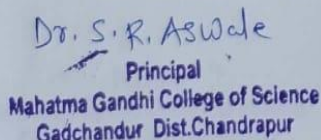 Dr. S. R. Aswale
Principal
Mahatma Gandhi College of Science
Gadchandur Dist.Chandrapur